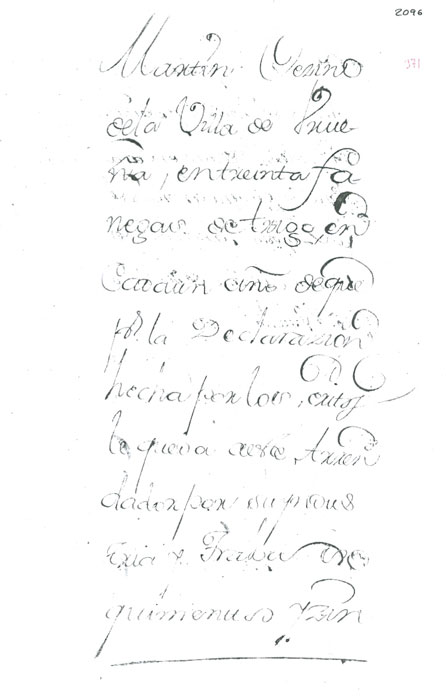 2096
371
Martin Vecino
de la Villa de Brue
ña, en treinta fa
negas de trigo, en
Cada un año de que
por la Declarazion
hecha por los
le queda a este Arren
dador por su
tria y Trabajo
quinientos y